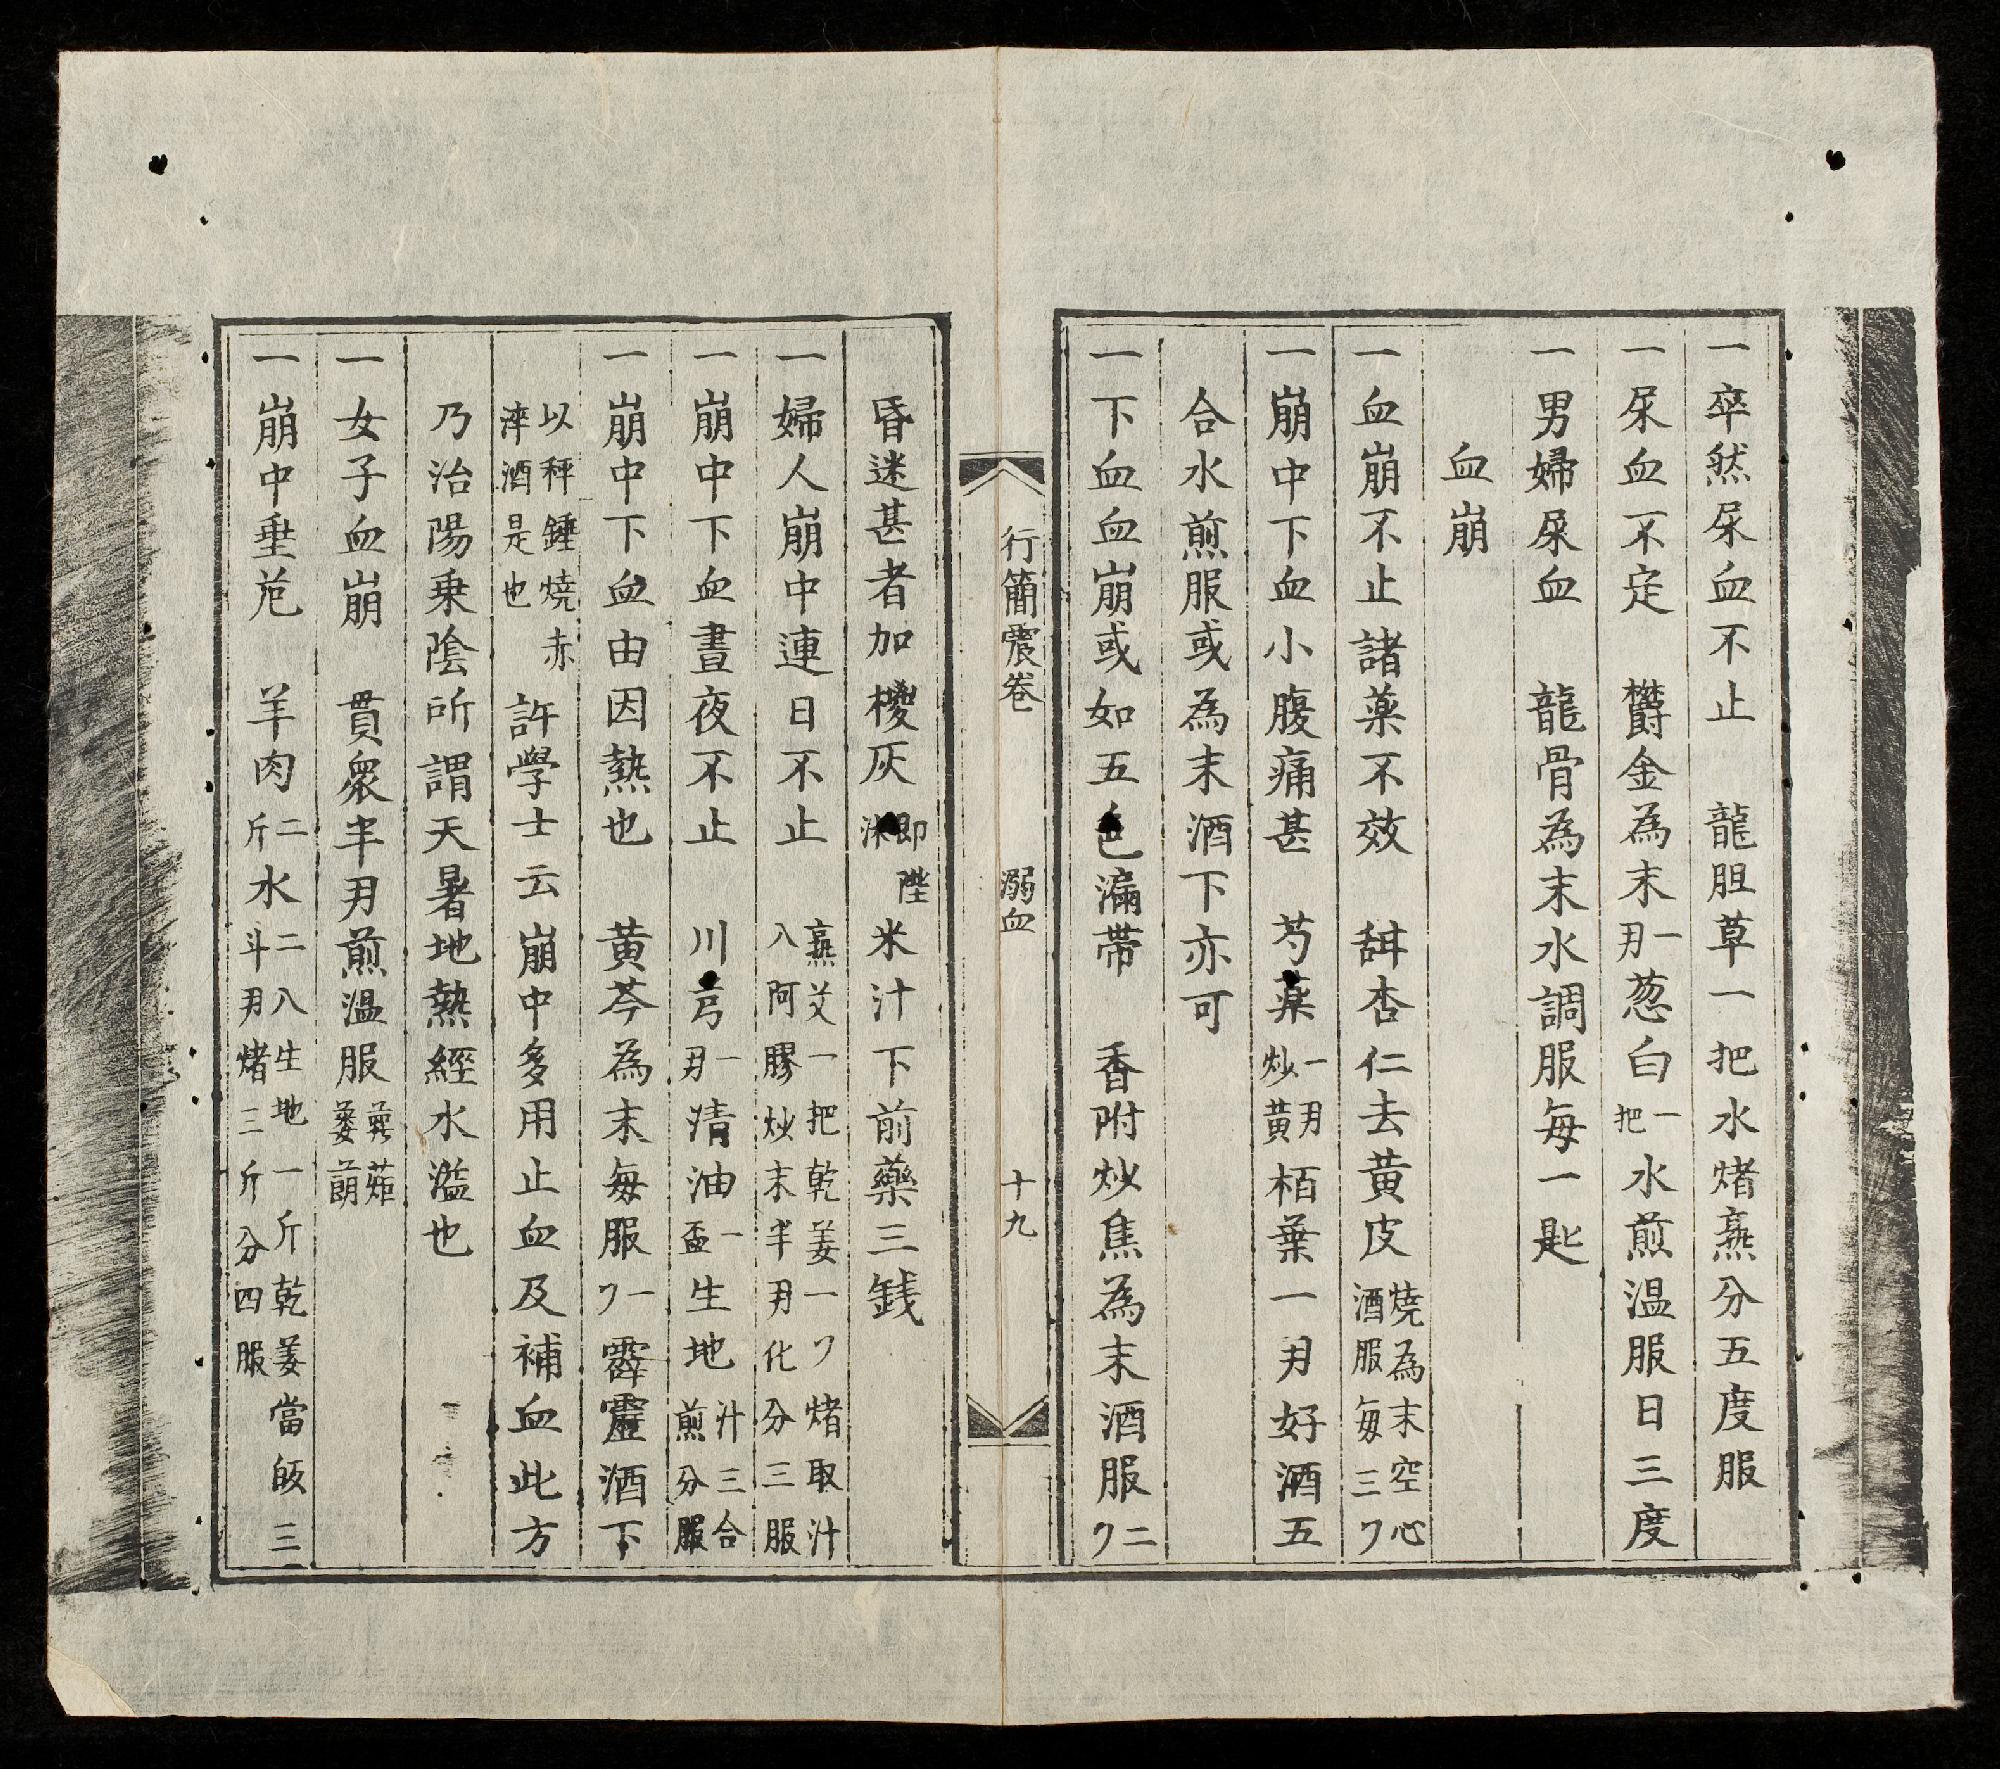 一卒然尿血不止　龍胆草一把水煮熟分五度服
一尿血不定　欝金為末一刄葱白一把水煎温服日三度
一男婦尿血　龍骨為末水調服每一匙
血崩
一血崩不止諸薬不效　甜杏仁去黄皮燒為末空心酒服每三㇇
一崩中下血小腹痛甚　芍薬一刄炒黄栢葉一刄好酒五
合水煎服或為末酒下亦可
一下血血崩或如五色漏帶　香附炒焦為末酒服二㇇
行簡震卷　溺血　十九
昏迷甚者加椶灰即陛㳍米汁下前藥三銭
一婦人崩中連日不止　熟艾一把乾姜一㇇煮取汁入阿膠炒末半刄化分三服
一崩中下血晝夜不止　川芎一刄清油一盃生地汁三合煎分服
一崩中下血由因熱也　黄芩為末每服一㇇霹靂酒下
以秤錘燒赤淬酒是也　許學士云崩中多用止血及補血此方
乃治陽乗陰所謂天暑地熱經水溢也
一女子血崩　貫衆半刄煎温服
一崩中垂危　羊肉二斤水二斗生地一斤乾姜當皈三刄煮三斤分四服